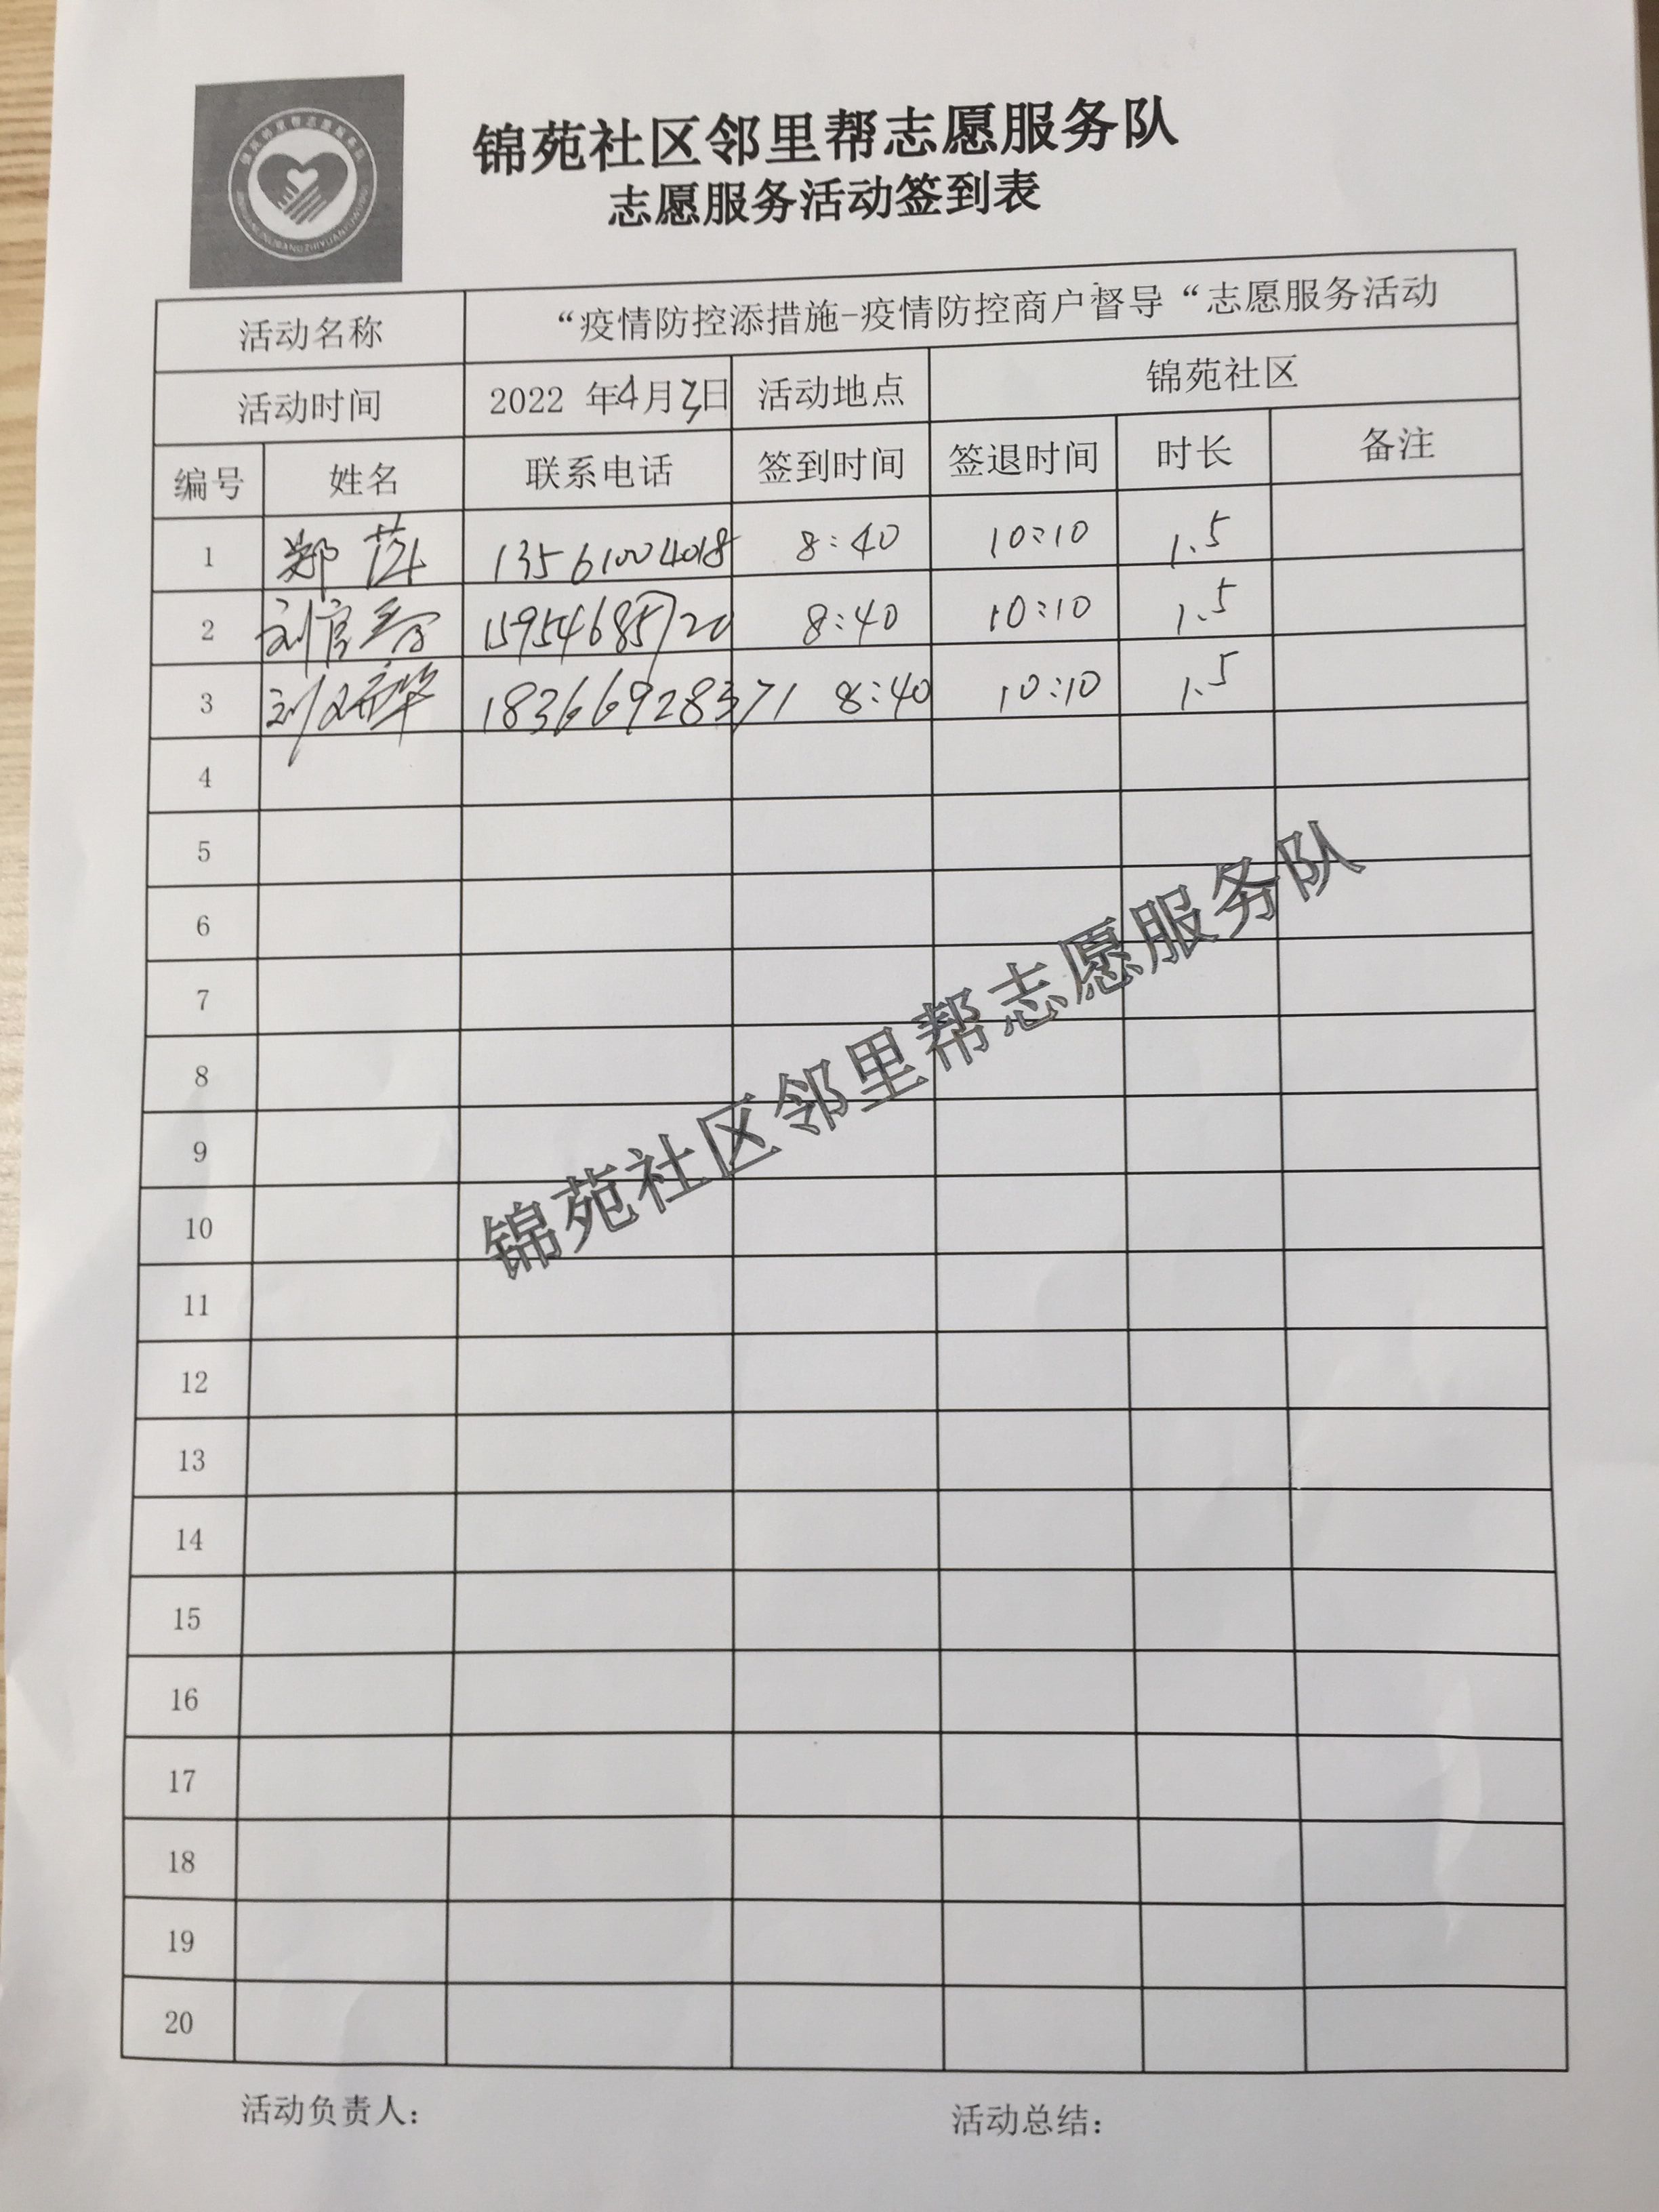 锦苑社区邻里帮志愿服务队
志愿服务活动签到表
活动名称 “疫情防控添措施-疫情防控商户督导“志愿服务活动
活动时间 2022 年4月3日 活动地点 锦苑社区
编号 姓名 联系电话 签到时间 签退时间 时长 备注
1 郑 13561004018 8:40 10:10 1.5
2 刘官 15954685720 8:40 10:10 1.5
3 刘 18366928371 8:40 10:10 1.5
4
5
6
7
8
9
10
11
12
13
14
15
16
17
18
19
20
锦苑社区邻里帮志愿服务队
活动负责人： 活动总结：